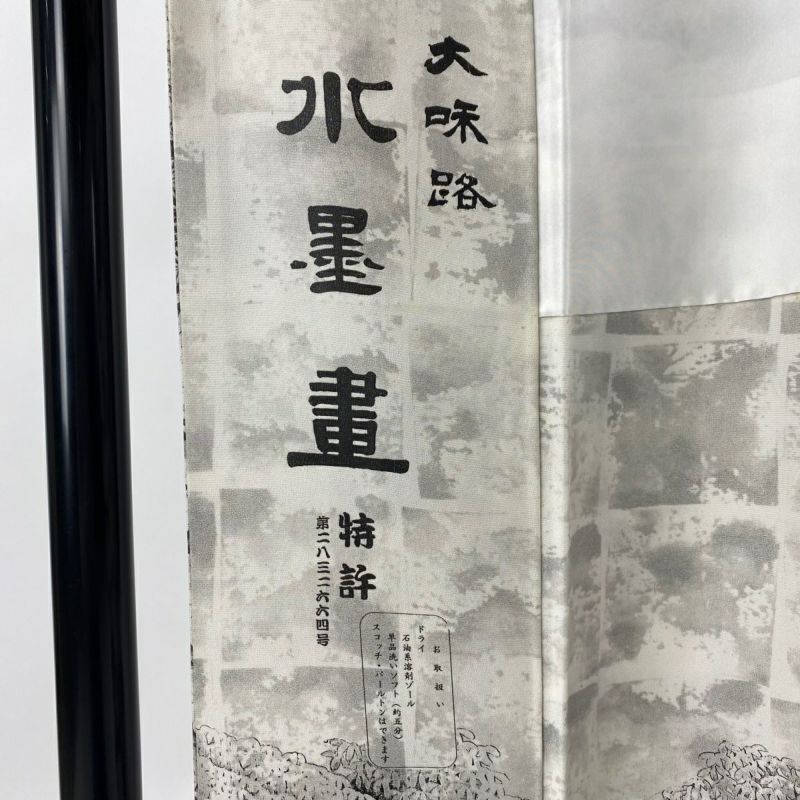 大味路
水墨畫
特許
第二八三二六六四号
お取扱い
ドライ
石油系溶剤ゾール
単品洗いソフト(約五分)
スコッチ・パールトンはできます